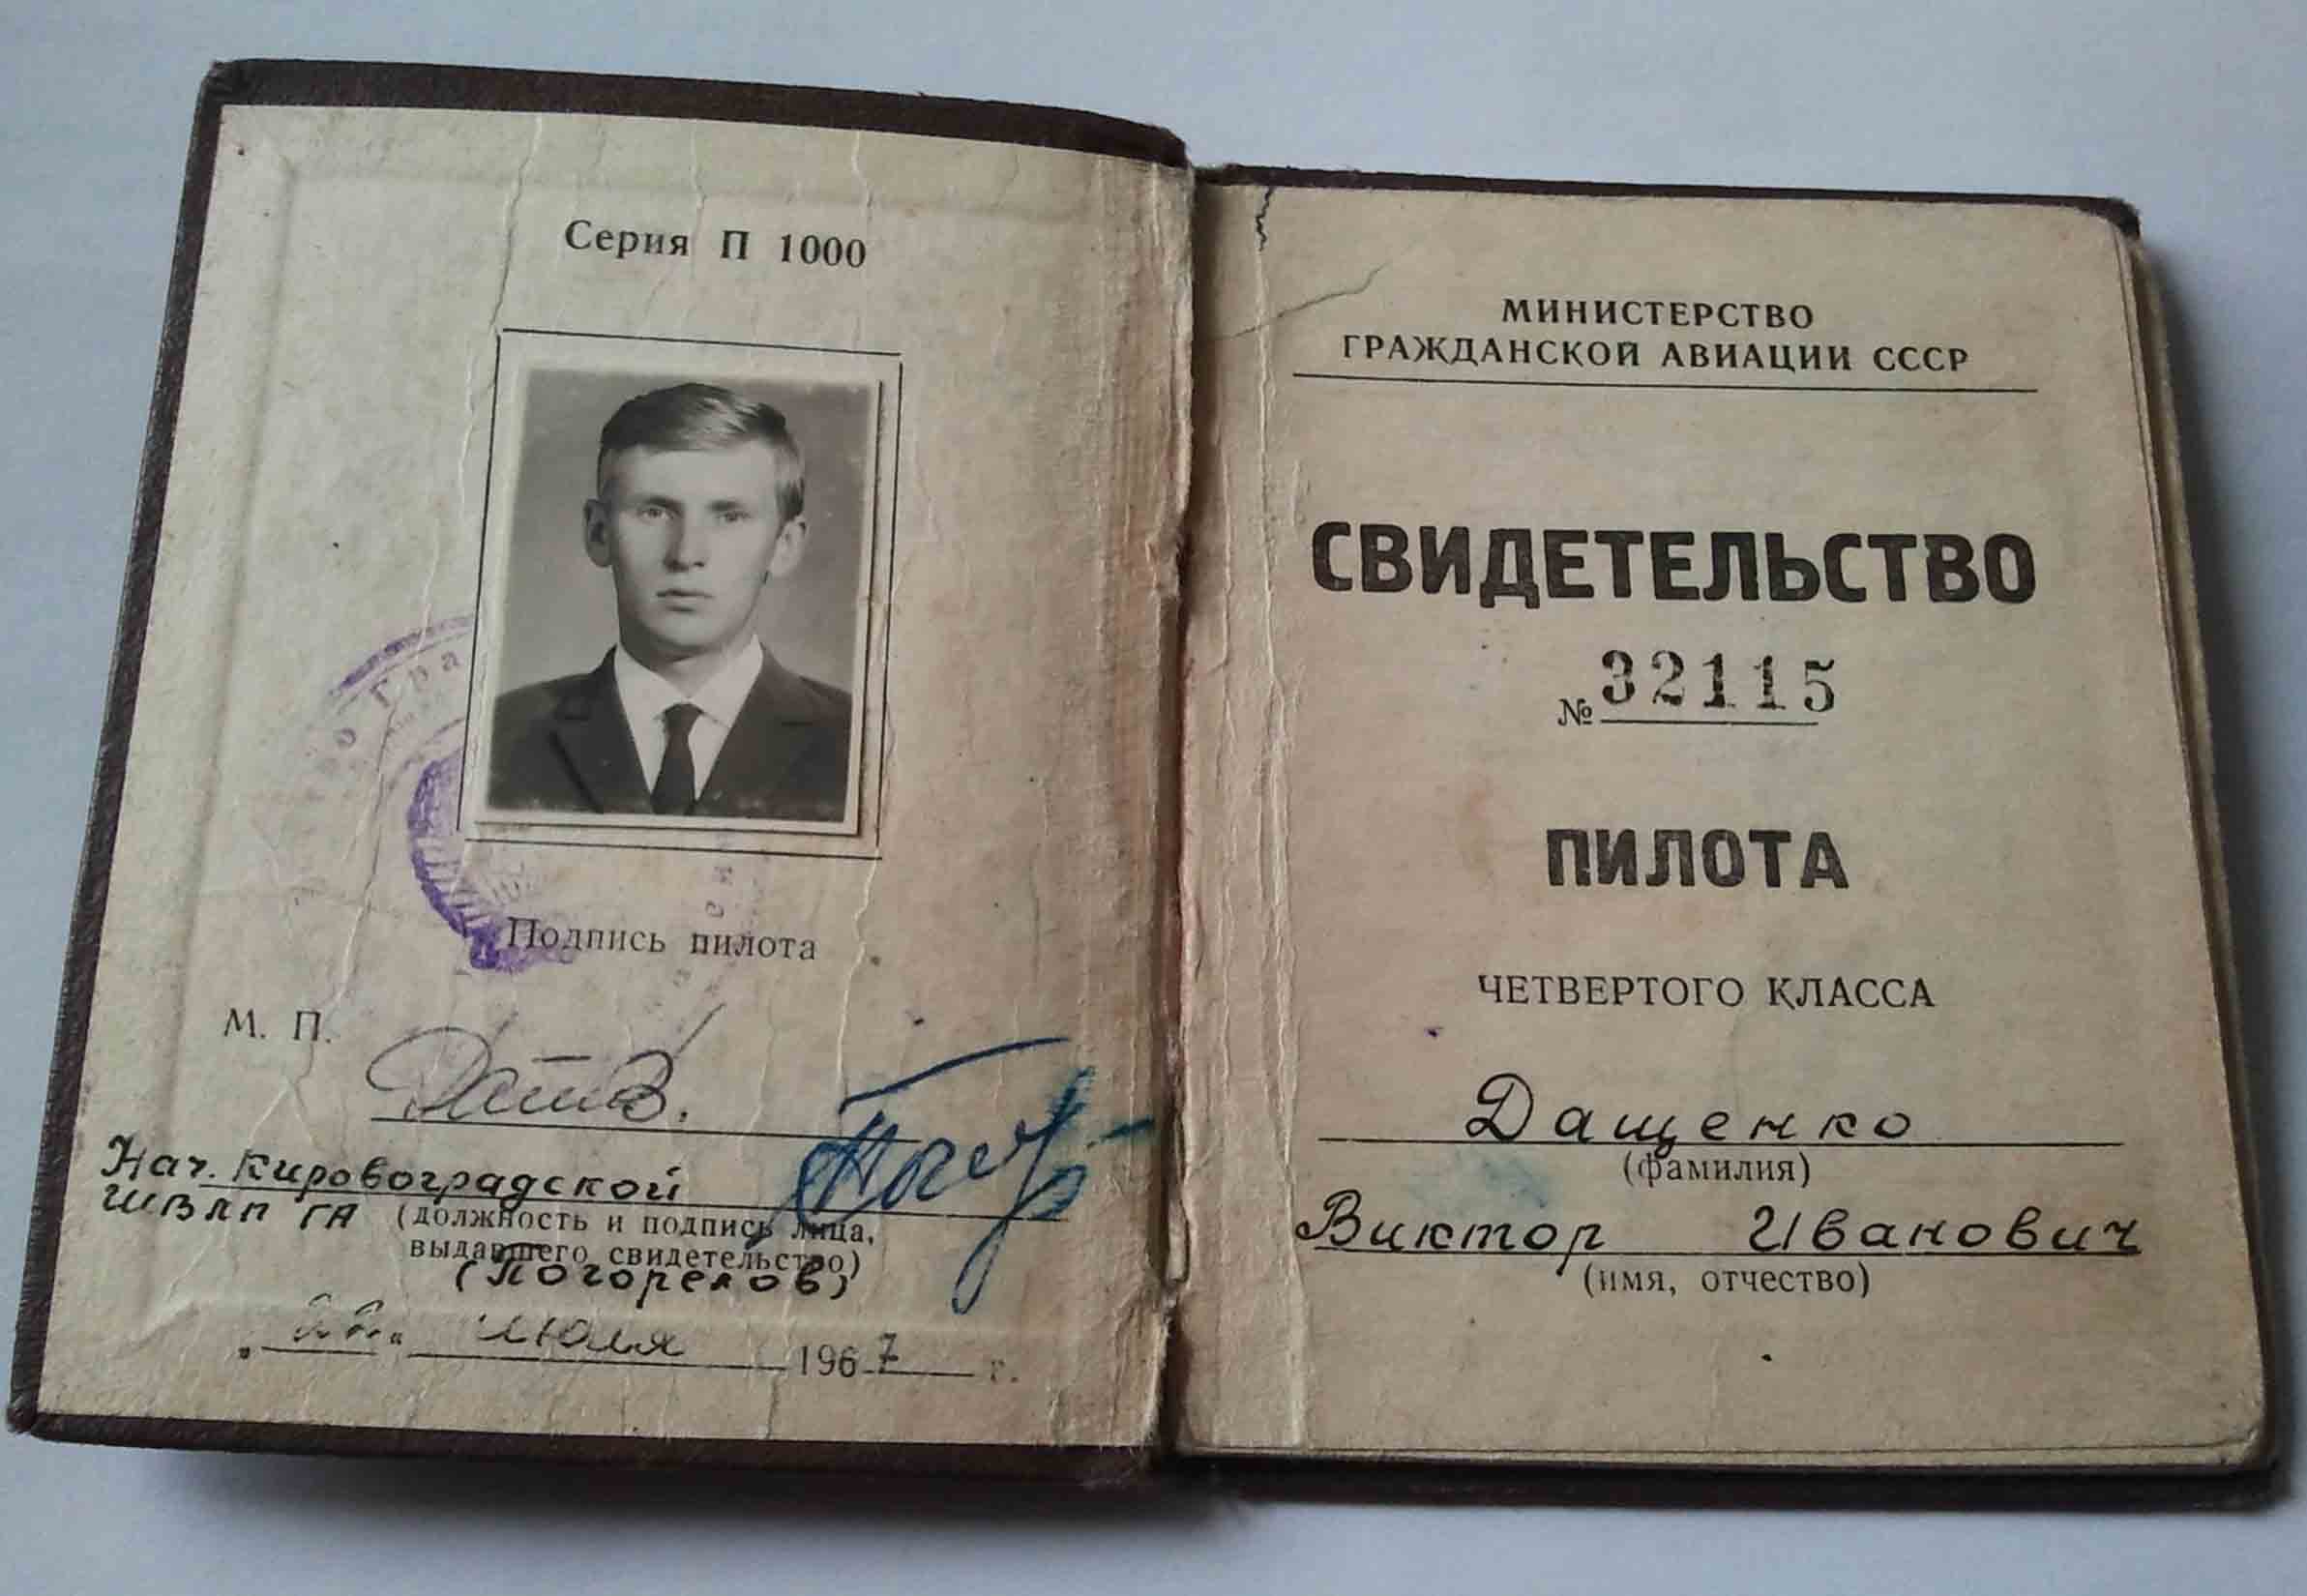 Серия П 1000
Гра
Подпись пилота
М. П.
Нач. Кировоградской
ШВЛП ГА (должность и подпись лица,
выдавшего свидетельство)
(Погорелов)
июля 1967 г.
МИНИСТЕРСТВО
ГРАЖДАНСКОЙ АВИАЦИИ СССР
СВИДЕТЕЛЬСТВО
№ 32115
ПИЛОТА
ЧЕТВЕРТОГО КЛАССА
Дащенко
(фамилия)
Виктор Иванович
(имя, отчество)